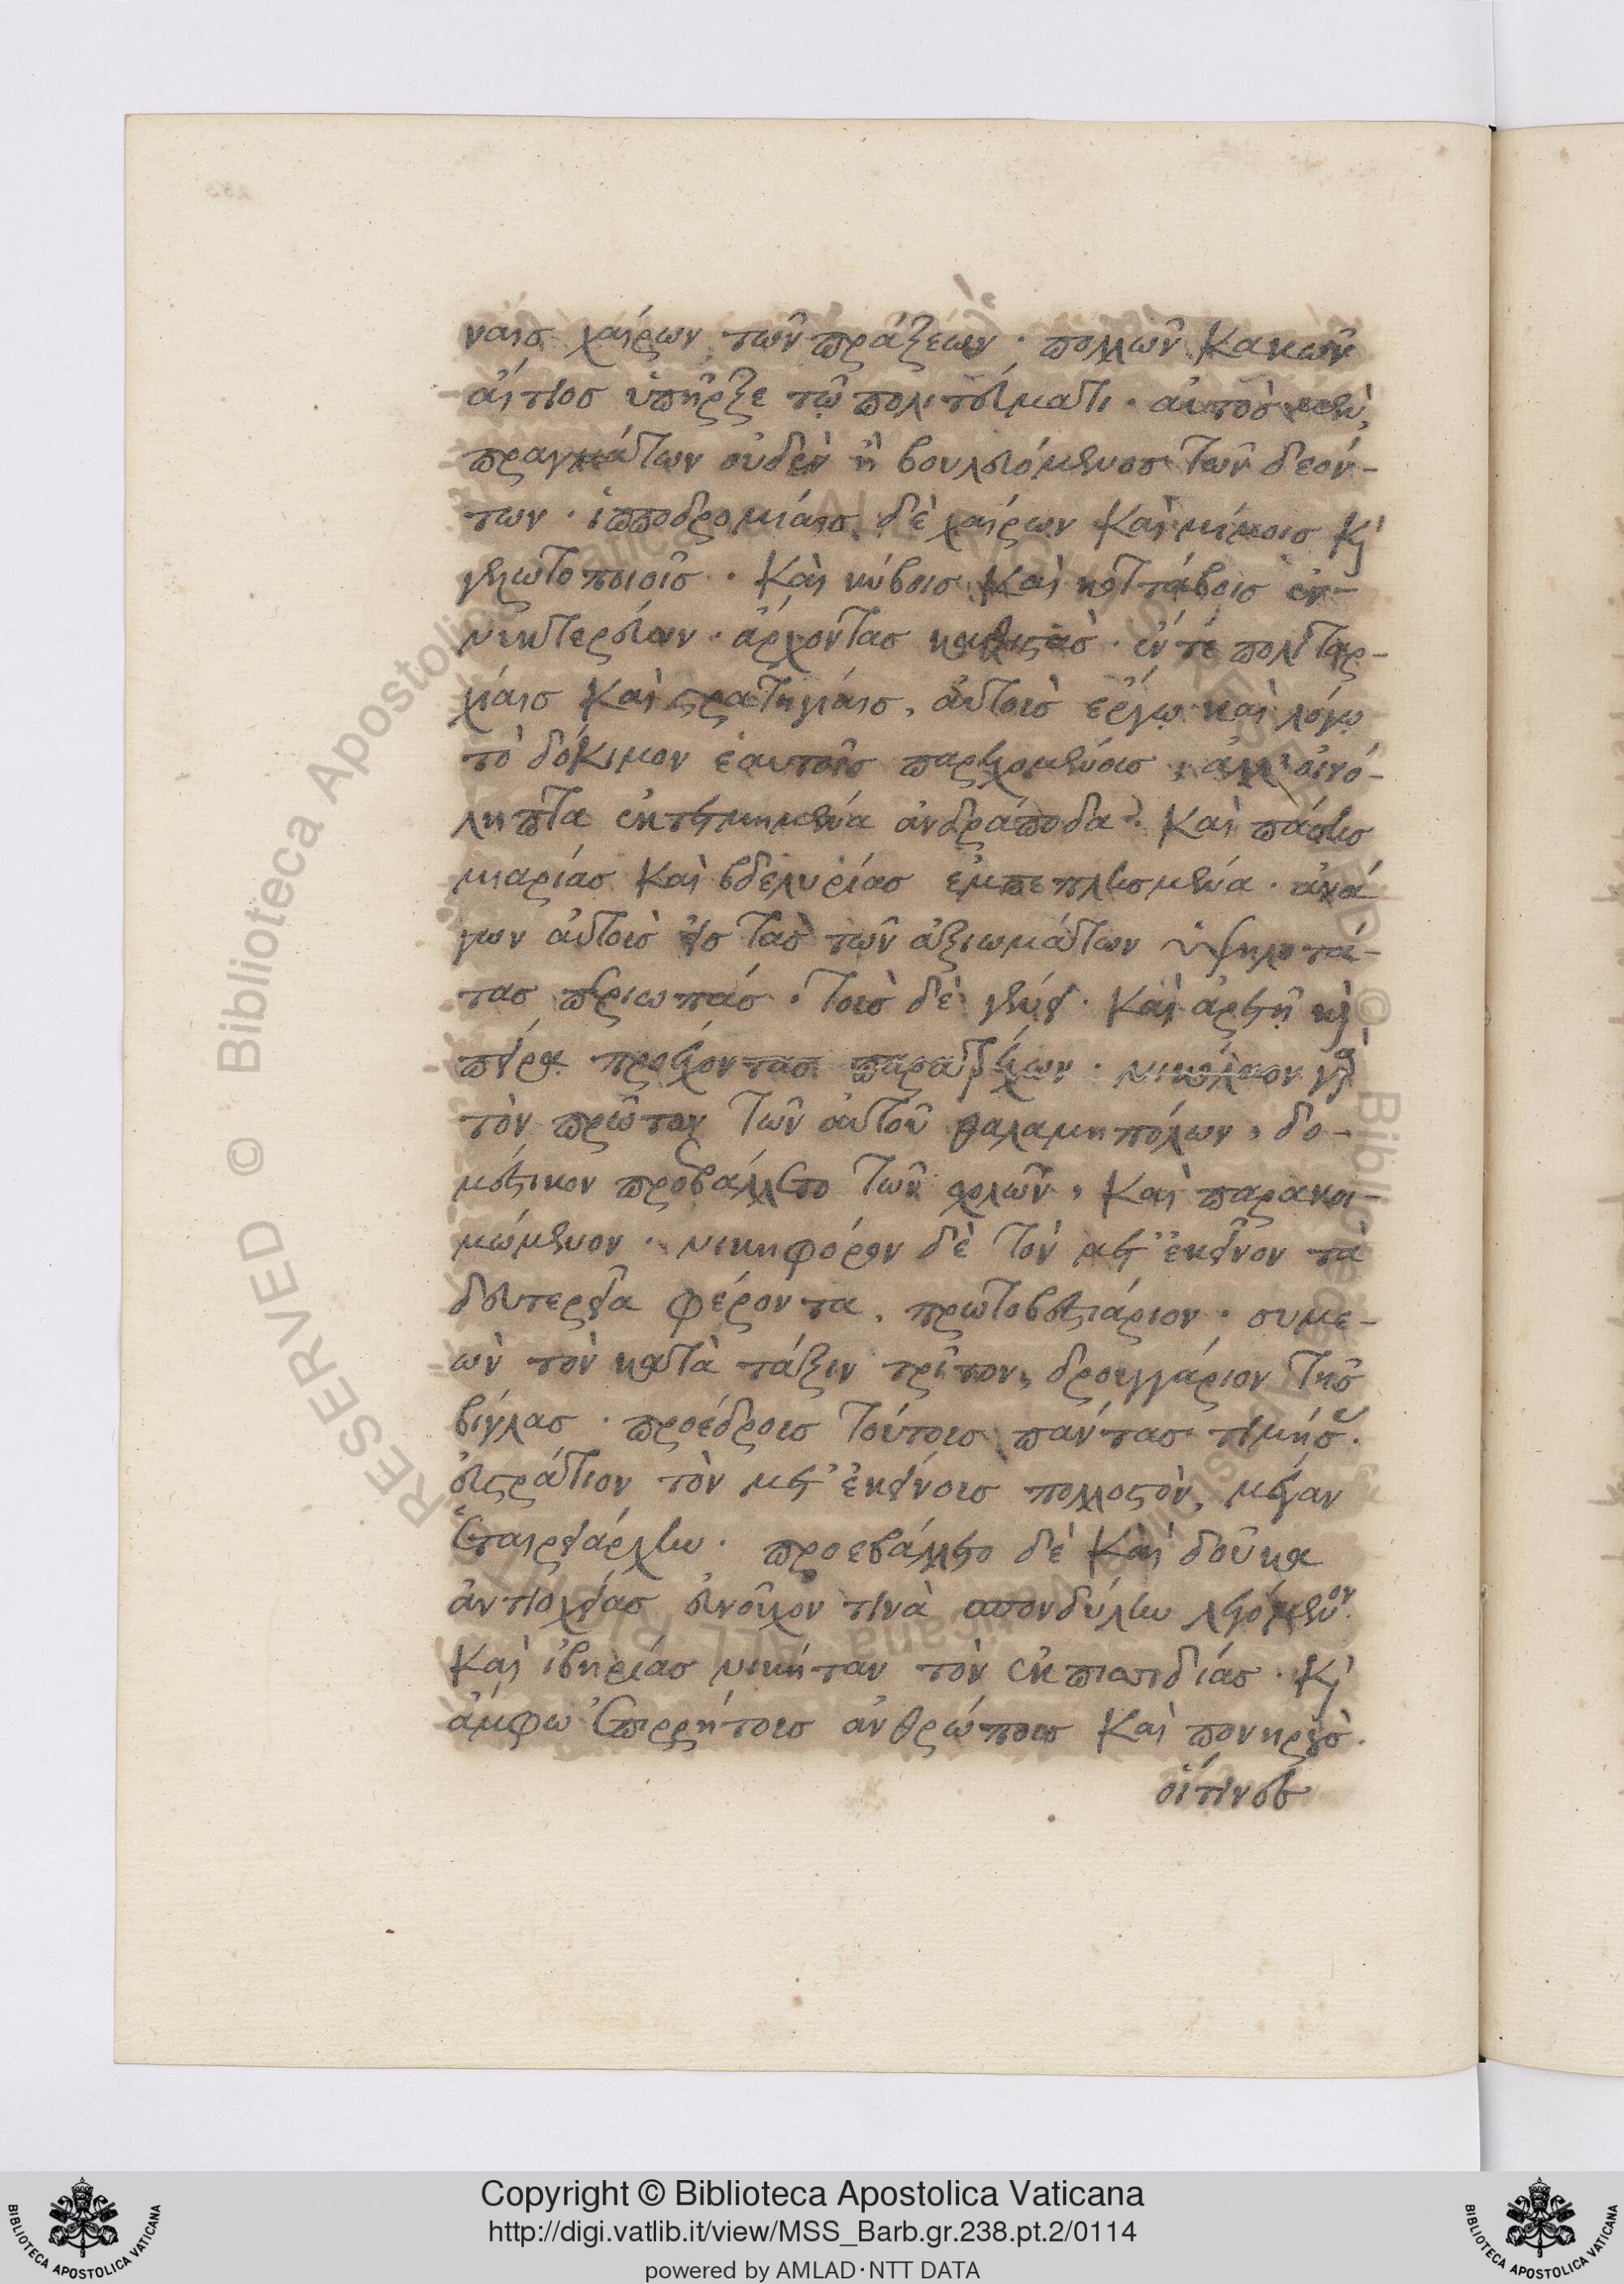 ναις χαίρων τῶν πράξεων · πολλῶν κακῶν
αἴτιος ὑπῆρξε τῷ πολιτεύματι · αὐτὸς μὲν,
πραγμάτων οὐδὲν ἢ βουλευόμενος τῶν δεόν-
των · ἱπποδρομίαις δὲ χαίρων καὶ μίμοις κ̀
γελωτοποιοῖς · καὶ κύβοις καὶ κοττάβοις ἐν-
νυκτερεύων · ἄρχοντας καθιστὰς · ἔν τε πολιταρ-
χίαις καὶ στρατηγίαις, οὐ τοὺς ἔργῳ καὶ λόγῳ
τὸ δόκιμον ἑαυτοῖς παρεχομένους, ἀλλ' οἰνό-
ληπτα ἐκτετμημένα ἀνδράποδα · καὶ πάσης
μιαρίας καὶ βδελυρίας ἐμπεπλησμένα · ἀνά
γων αὐτοὺς εἰς τὰς τῶν ἀξιωμάτων ὑψηλοτά-
τας περιωπάς · τοὺς δὲ γένει · καὶ ἀρετῇ κ̀
πείρᾳ προέχοντας παρατρέχων · νικόλαον γὰρ
τὸν πρῶτον τῶν αὐτοῦ θαλαμηπόλων, δο-
μέστικον προβάλλεται τῶν σχολῶν, καὶ παρακοι-
μώμενον · νικηφόρον δὲ τὸν μετ' ἐκεῖνον τὰ
δευτερεῖα φέροντα, πρωτοβεστιάριον · συμε-
ὼν τὸν κατὰ τάξιν τρίτον, δρουγγάριον τῆς
βίγλας · προέδρους τούτους πάντας τιμήσας.
εὐστράτιον τὸν μετ' ἐκείνους πολλοστὸν, μέγαν
ἑταιρειάρχην · προεβάλλετο δὲ καὶ δοῦκα
ἀντιοχείας εὐνοῦχον τινὰ σπονδύλην λεγόμενον.
καὶ ἰβηρίας νικήταν τὸν ἐκ πισιδίας · κ̀
ἄμφω ἐπιρρήτους ἀνθρώπους καὶ πονηροὺς.
οἵτινες
Copyright © Biblioteca Apostolica Vaticana
http://digi.vatlib.it/view/MSS_Barb.gr.238.pt.2/0114
powered by AMLAD·NTT DATA